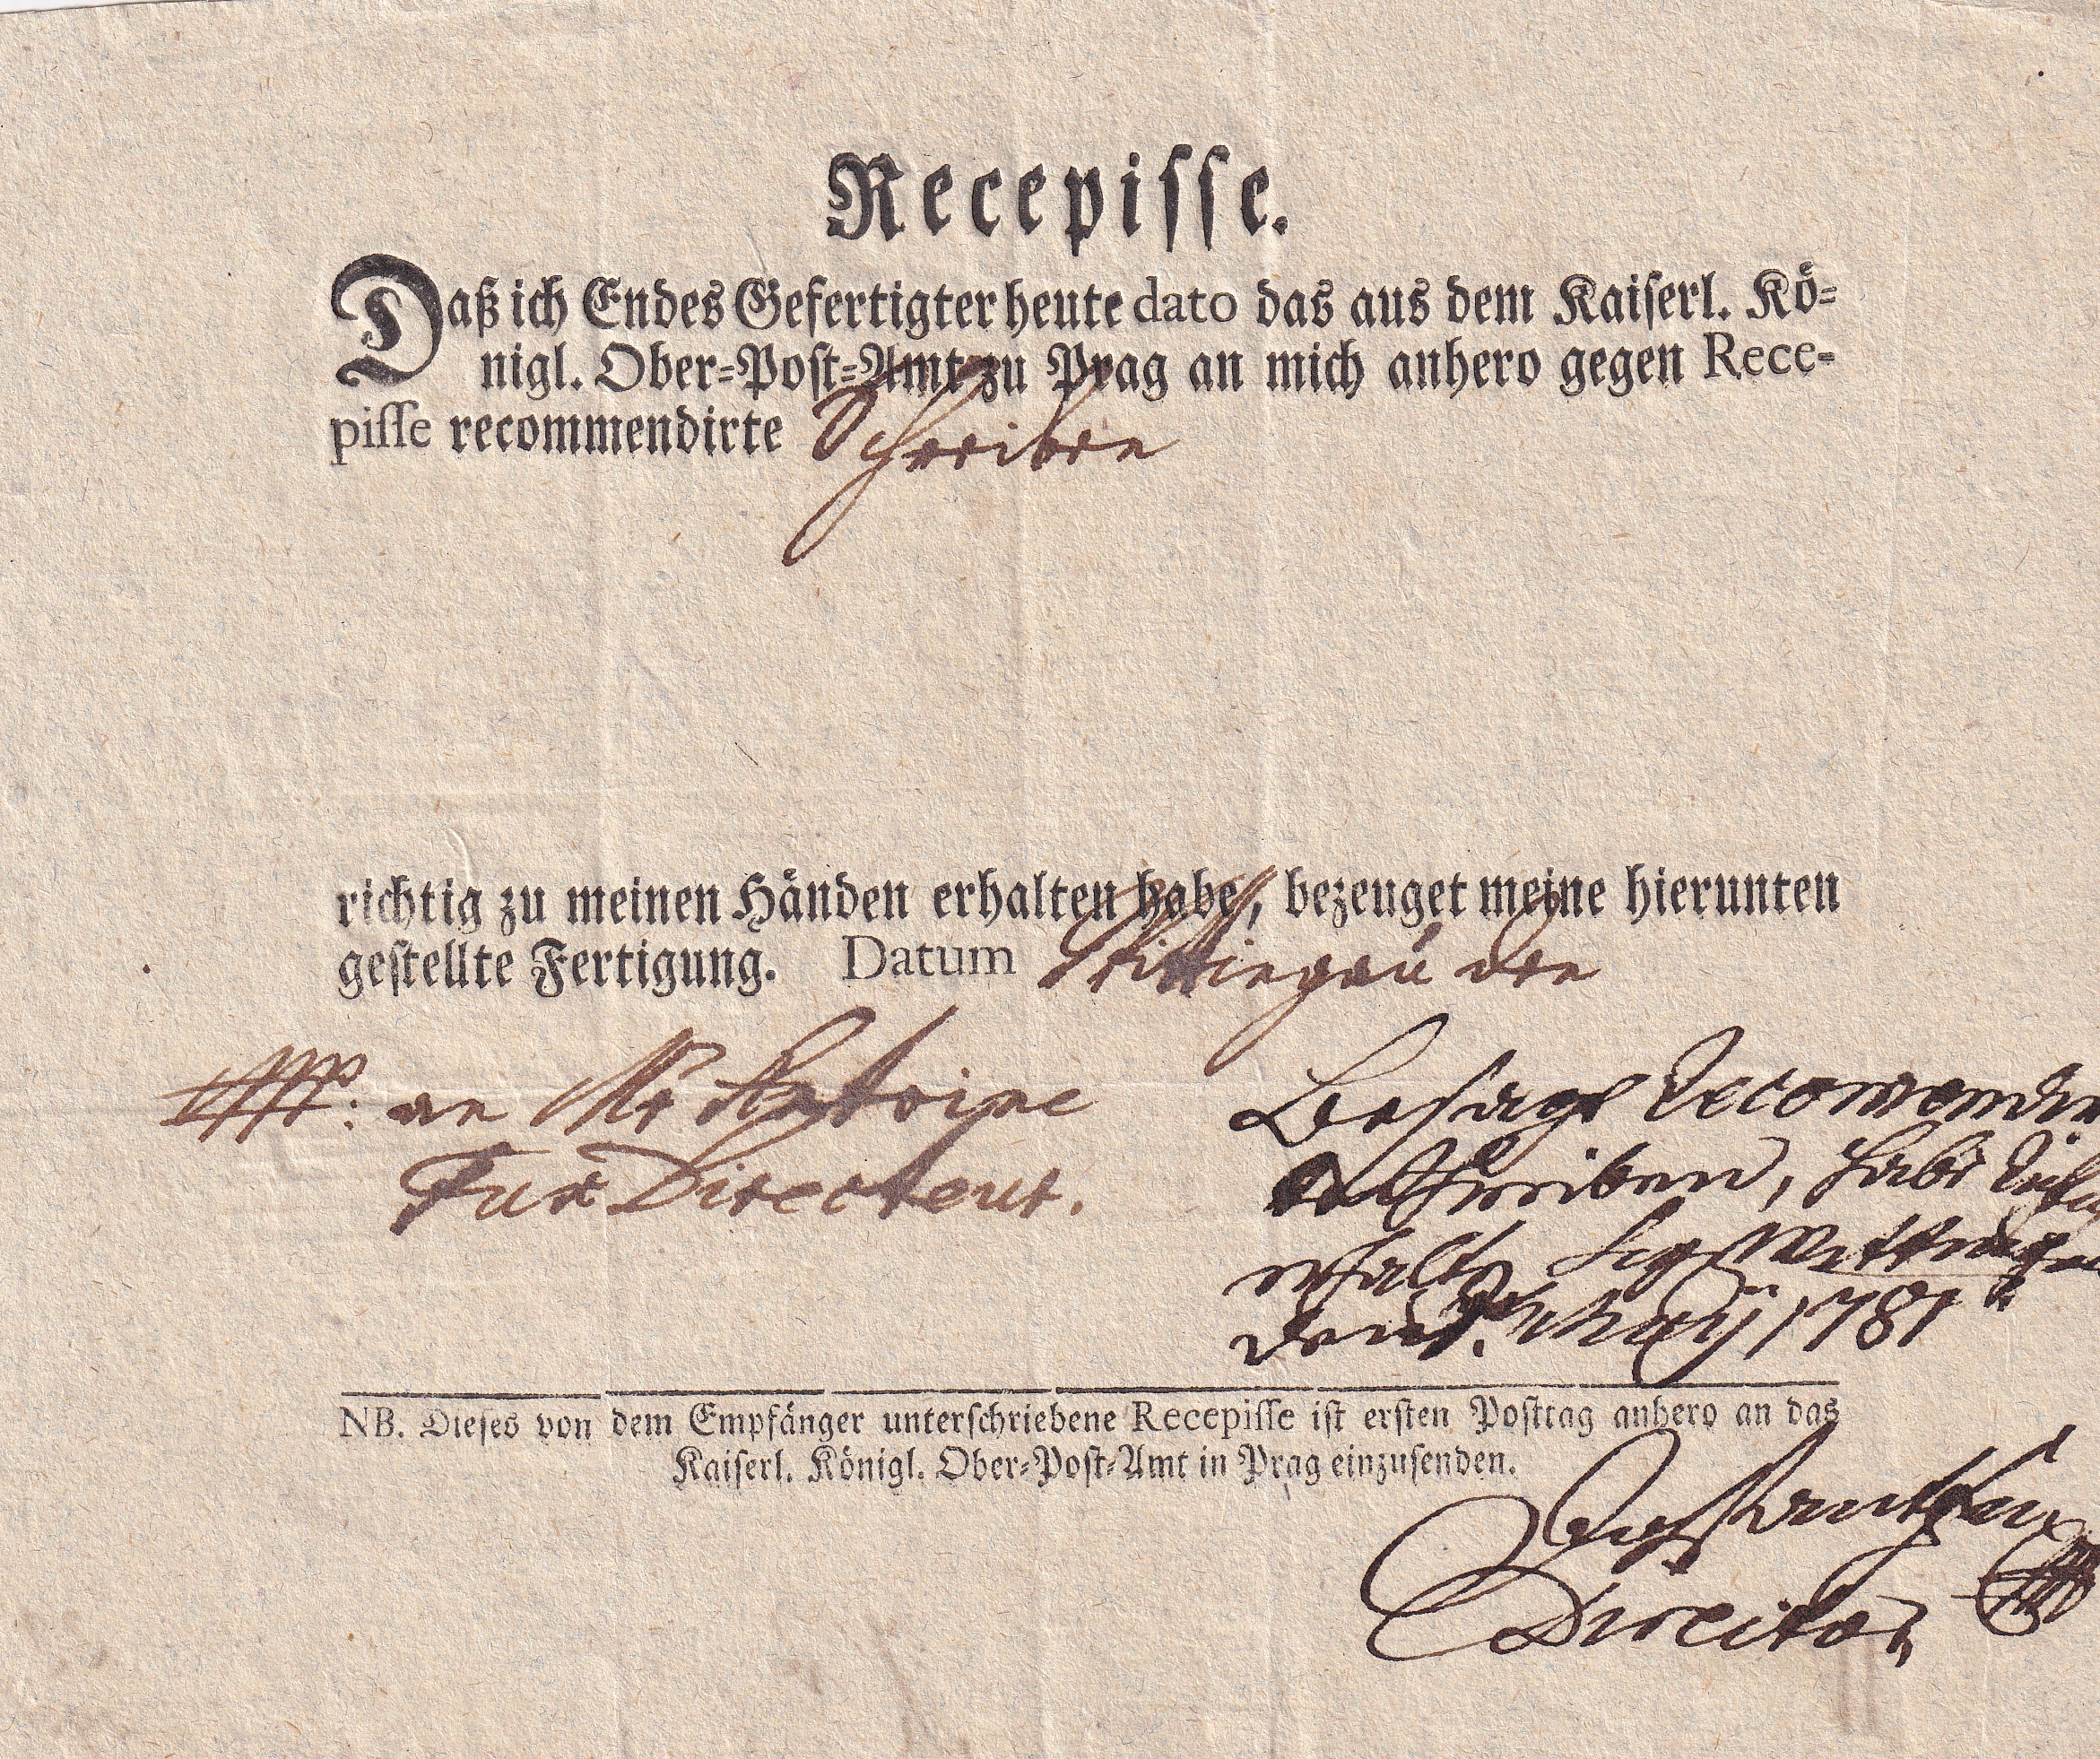 Recepisse.
Daß ich Endes Gefertigter heute dato das aus dem Kaiserl. Kö=
nigl. Ober=Post=Amt zu Prag an mich anhero gegen Rece-
pisse recommendirte Schreiben
richtig zu meinen Händen erhalten habe, bezeuget meine hierunten
gestellte Fertigung. Datum Wittingau den
an Mr Antoine
Fux Directeur.
Besagt Recomendir
Schreiben, habe
erhalten Wittingau
den May 1781
NB. Dieses von dem Empfänger unterschriebene Recepisse ist ersten Posttag anhero an das
Kaiserl. Königl. Ober=Post=Amt in Prag einzusenden.
Director